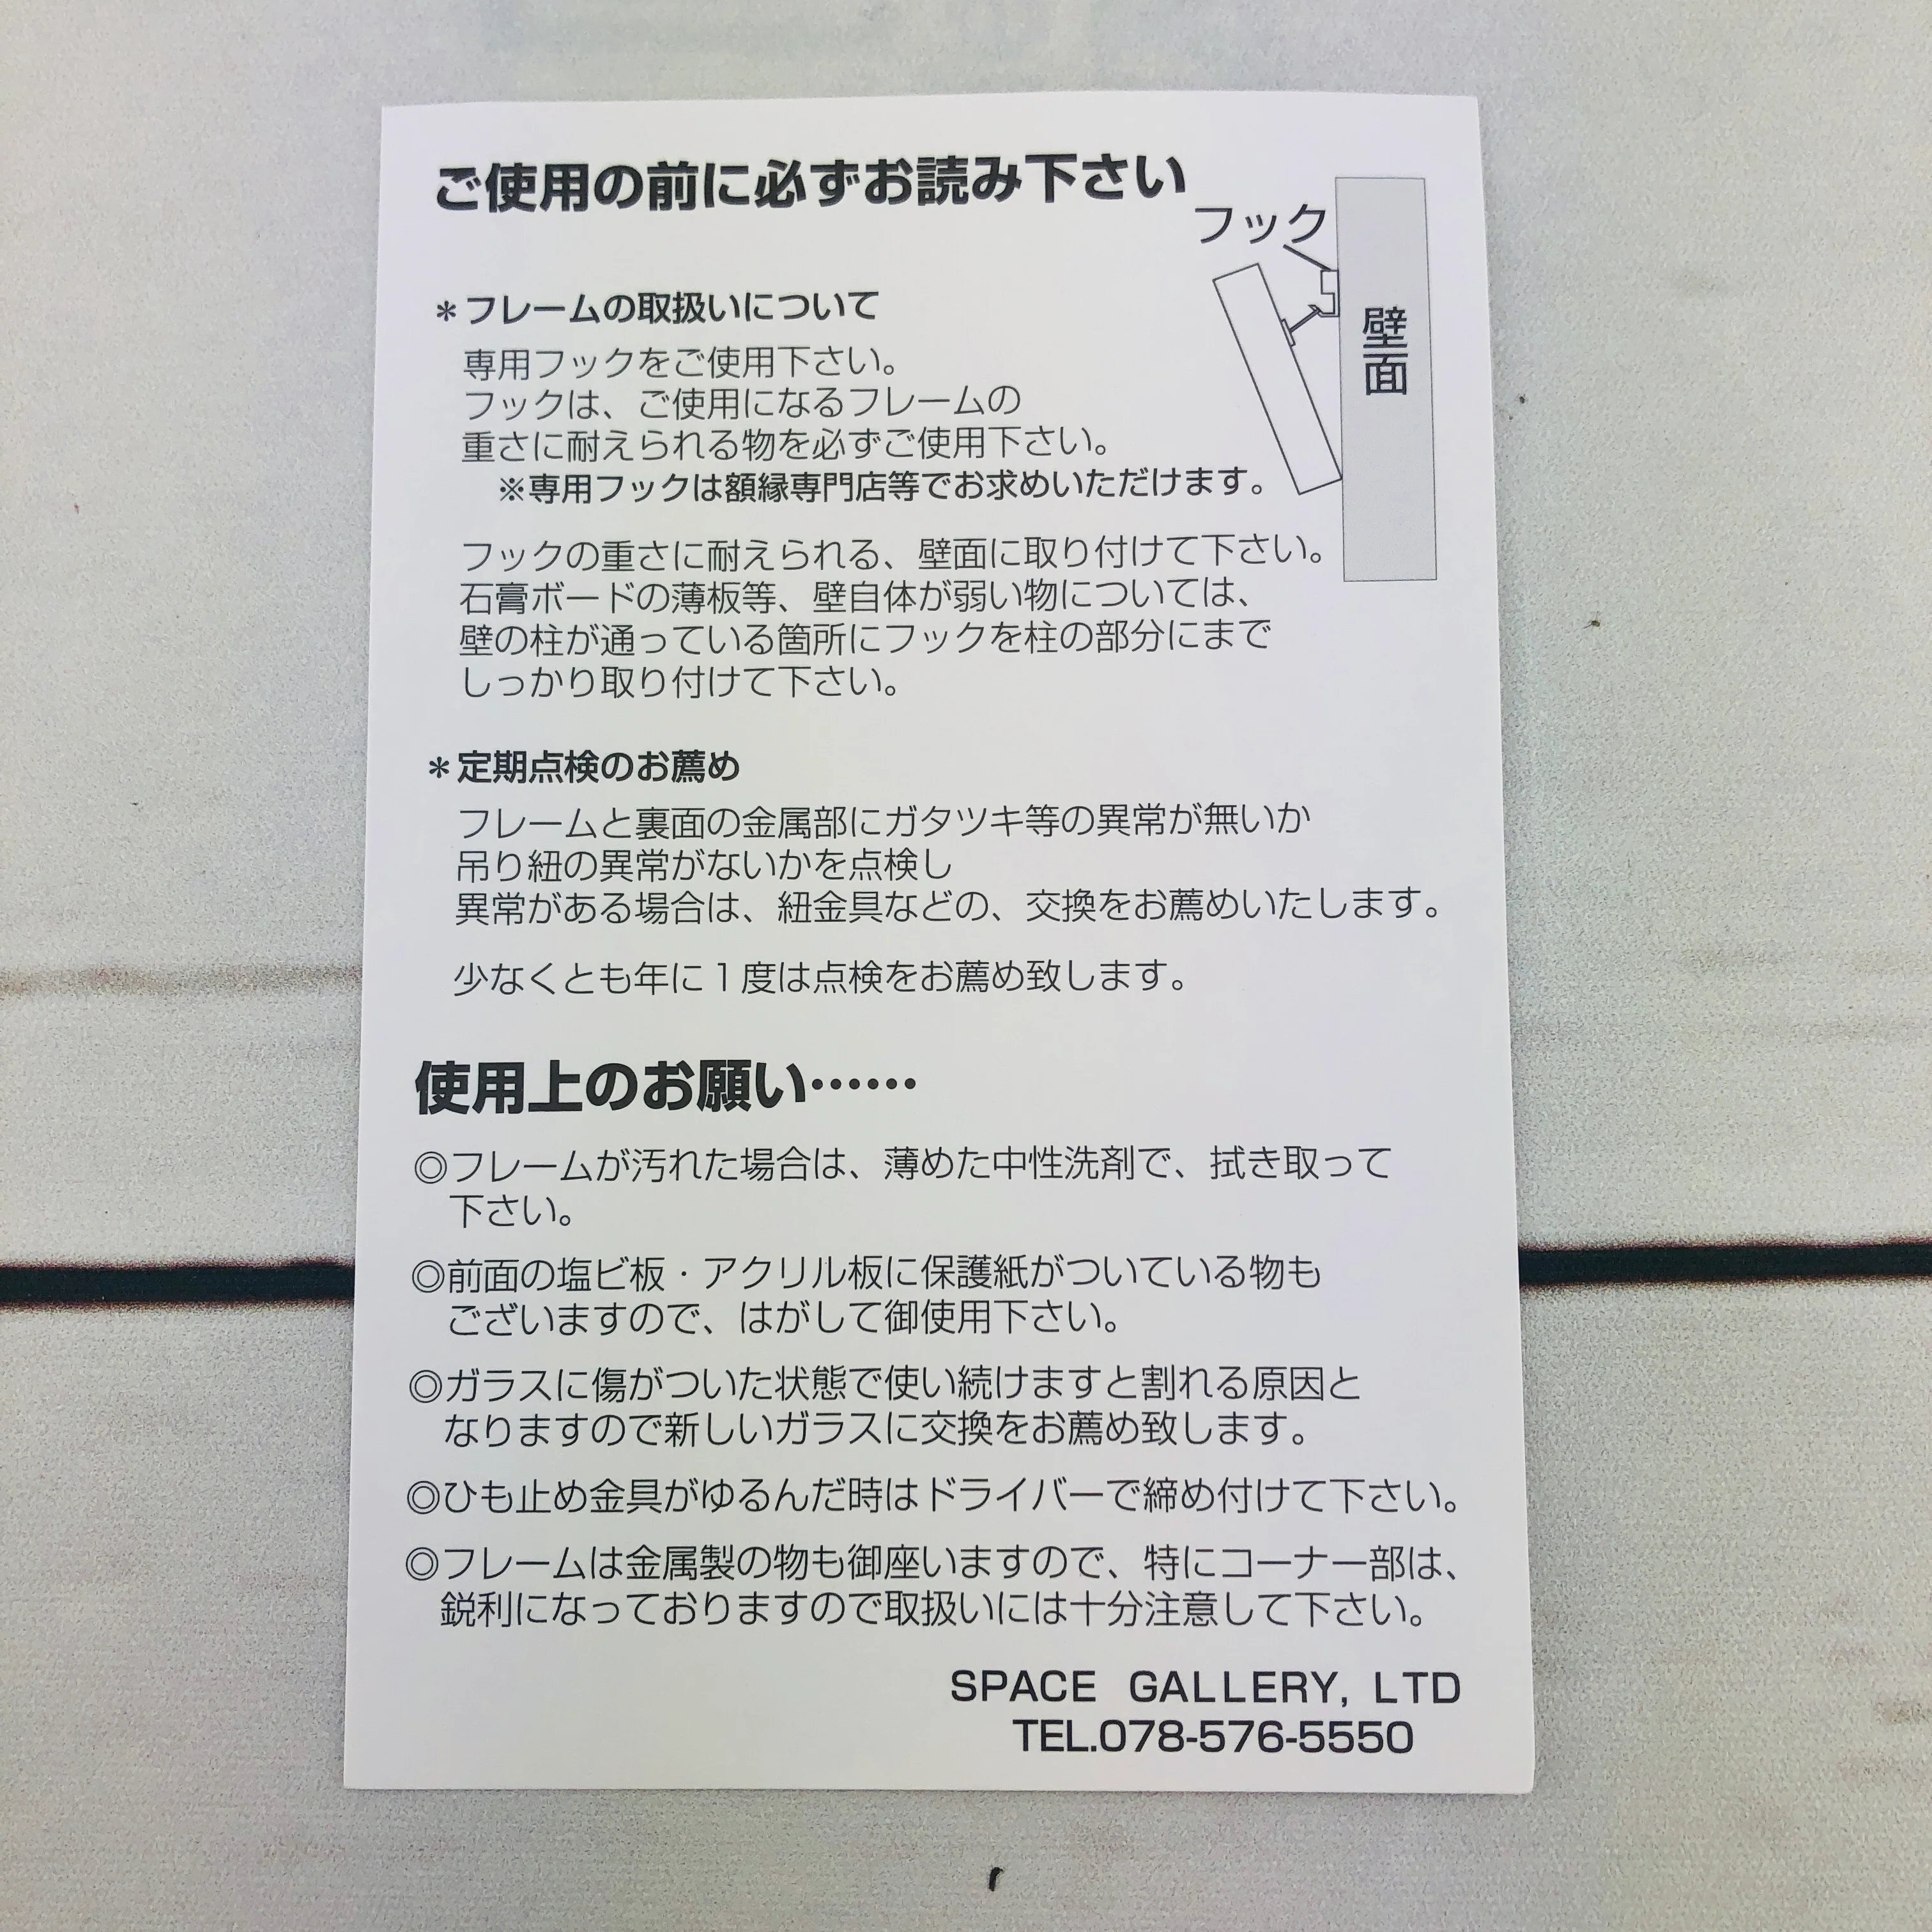 ご使用の前に必ずお読み下さい
フック
壁面
＊フレームの取扱いについて
専用フックをご使用下さい。
フックは、ご使用になるフレームの
重さに耐えられる物を必ずご使用下さい。
※専用フックは額縁専門店等でお求めいただけます。
フックの重さに耐えられる、壁面に取り付けて下さい。
石膏ボードの薄板等、壁自体が弱い物については、
壁の柱が通っている箇所にフックを柱の部分にまで
しっかり取り付けて下さい。
＊定期点検のお薦め
フレームと裏面の金属部にガタツキ等の異常が無いか
吊り紐の異常がないかを点検し
異常がある場合は、紐金具などの、交換をお薦めいたします。
少なくとも年に１度は点検をお薦め致します。
使用上のお願い……
◎フレームが汚れた場合は、薄めた中性洗剤で、拭き取って
下さい。
◎前面の塩ビ板・アクリル板に保護紙がついている物も
ございますので、はがして御使用下さい。
◎ガラスに傷がついた状態で使い続けますと割れる原因と
なりますので新しいガラスに交換をお薦め致します。
◎ひも止め金具がゆるんだ時はドライバーで締め付けて下さい。
◎フレームは金属製の物も御座いますので、特にコーナー部は、
鋭利になっておりますので取扱いには十分注意して下さい。
SPACE GALLERY, LTD
TEL.078-576-5550